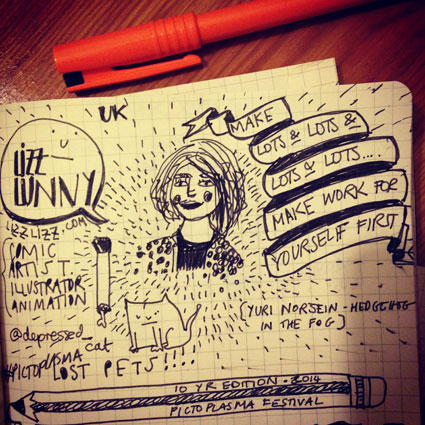 UK
LIZZ
LUNNY
LIZZLIZZ.COM
COMIC
ARTIST
ILLUSTRATOR
ANIMATION
@depressed_
cat
#PICTOPLASMA
LOST PETS!!!!
MAKE
LOTS & LOTS &
LOTS & LOTS....
MAKE WORK FOR
YOURSELF FIRST
[YURI NORSEIN - HEDGEHOG
IN THE FOG]
10 YR EDITION - 2014
PICTOPLASMA FESTIVAL